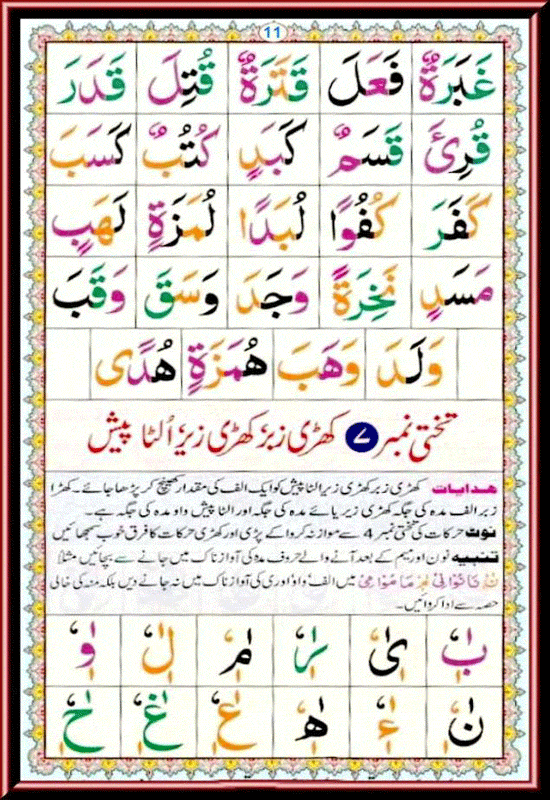 11
غَبَرَةٌ فَعَلَ قَتَرَةٌ قُتِلَ قَدَرَ
قُرِئَ قَسَمٌ كَبَدٍ كُتُبٌ كَسَبَ
كَفَرَ كُفُوًا لُبَدًا لُمَزَةٍ لَهَبٍ
مَسَدٍ نَخِرَةً وَجَدَ وَسَقَ وَقَبَ
وَلَدَ وَهَبَ هُمَزَةٍ هُدًى
تختی نمبر ۷ کھڑی زبر کھڑی زیر اُلٹا پیش
ھدایات کھڑی زبر کھڑی زیر الٹا پیش کو ایک الف کی مقدار کھینچ کر پڑھا جائے۔ کھڑا
زبر الف مدہ کی جگہ کھڑی زیر یائے مدہ کی جگہ اور الٹا پیش واو مدہ کی جگہ ہے۔
نوٹ حرکات کی تختی نمبر 4 سے موازنہ کروا کے پڑی اور کھڑی حرکات کا فرق خوب سمجھائیں
تنبیہ نون اور میم کے بعد آنے والے حروف مدہ کی آواز ناک میں جانے سے بچائیں مثلا
میں الف واو اور ی کی آواز ناک میں نہ جانے دیں بلکہ منہ کی خالی
حصہ سے ادا کروائیں۔
بٰ یٰ رٰ مٰ لٰ وٰ
نٰ ءٰ هٰ عٰ غٰ حٰ